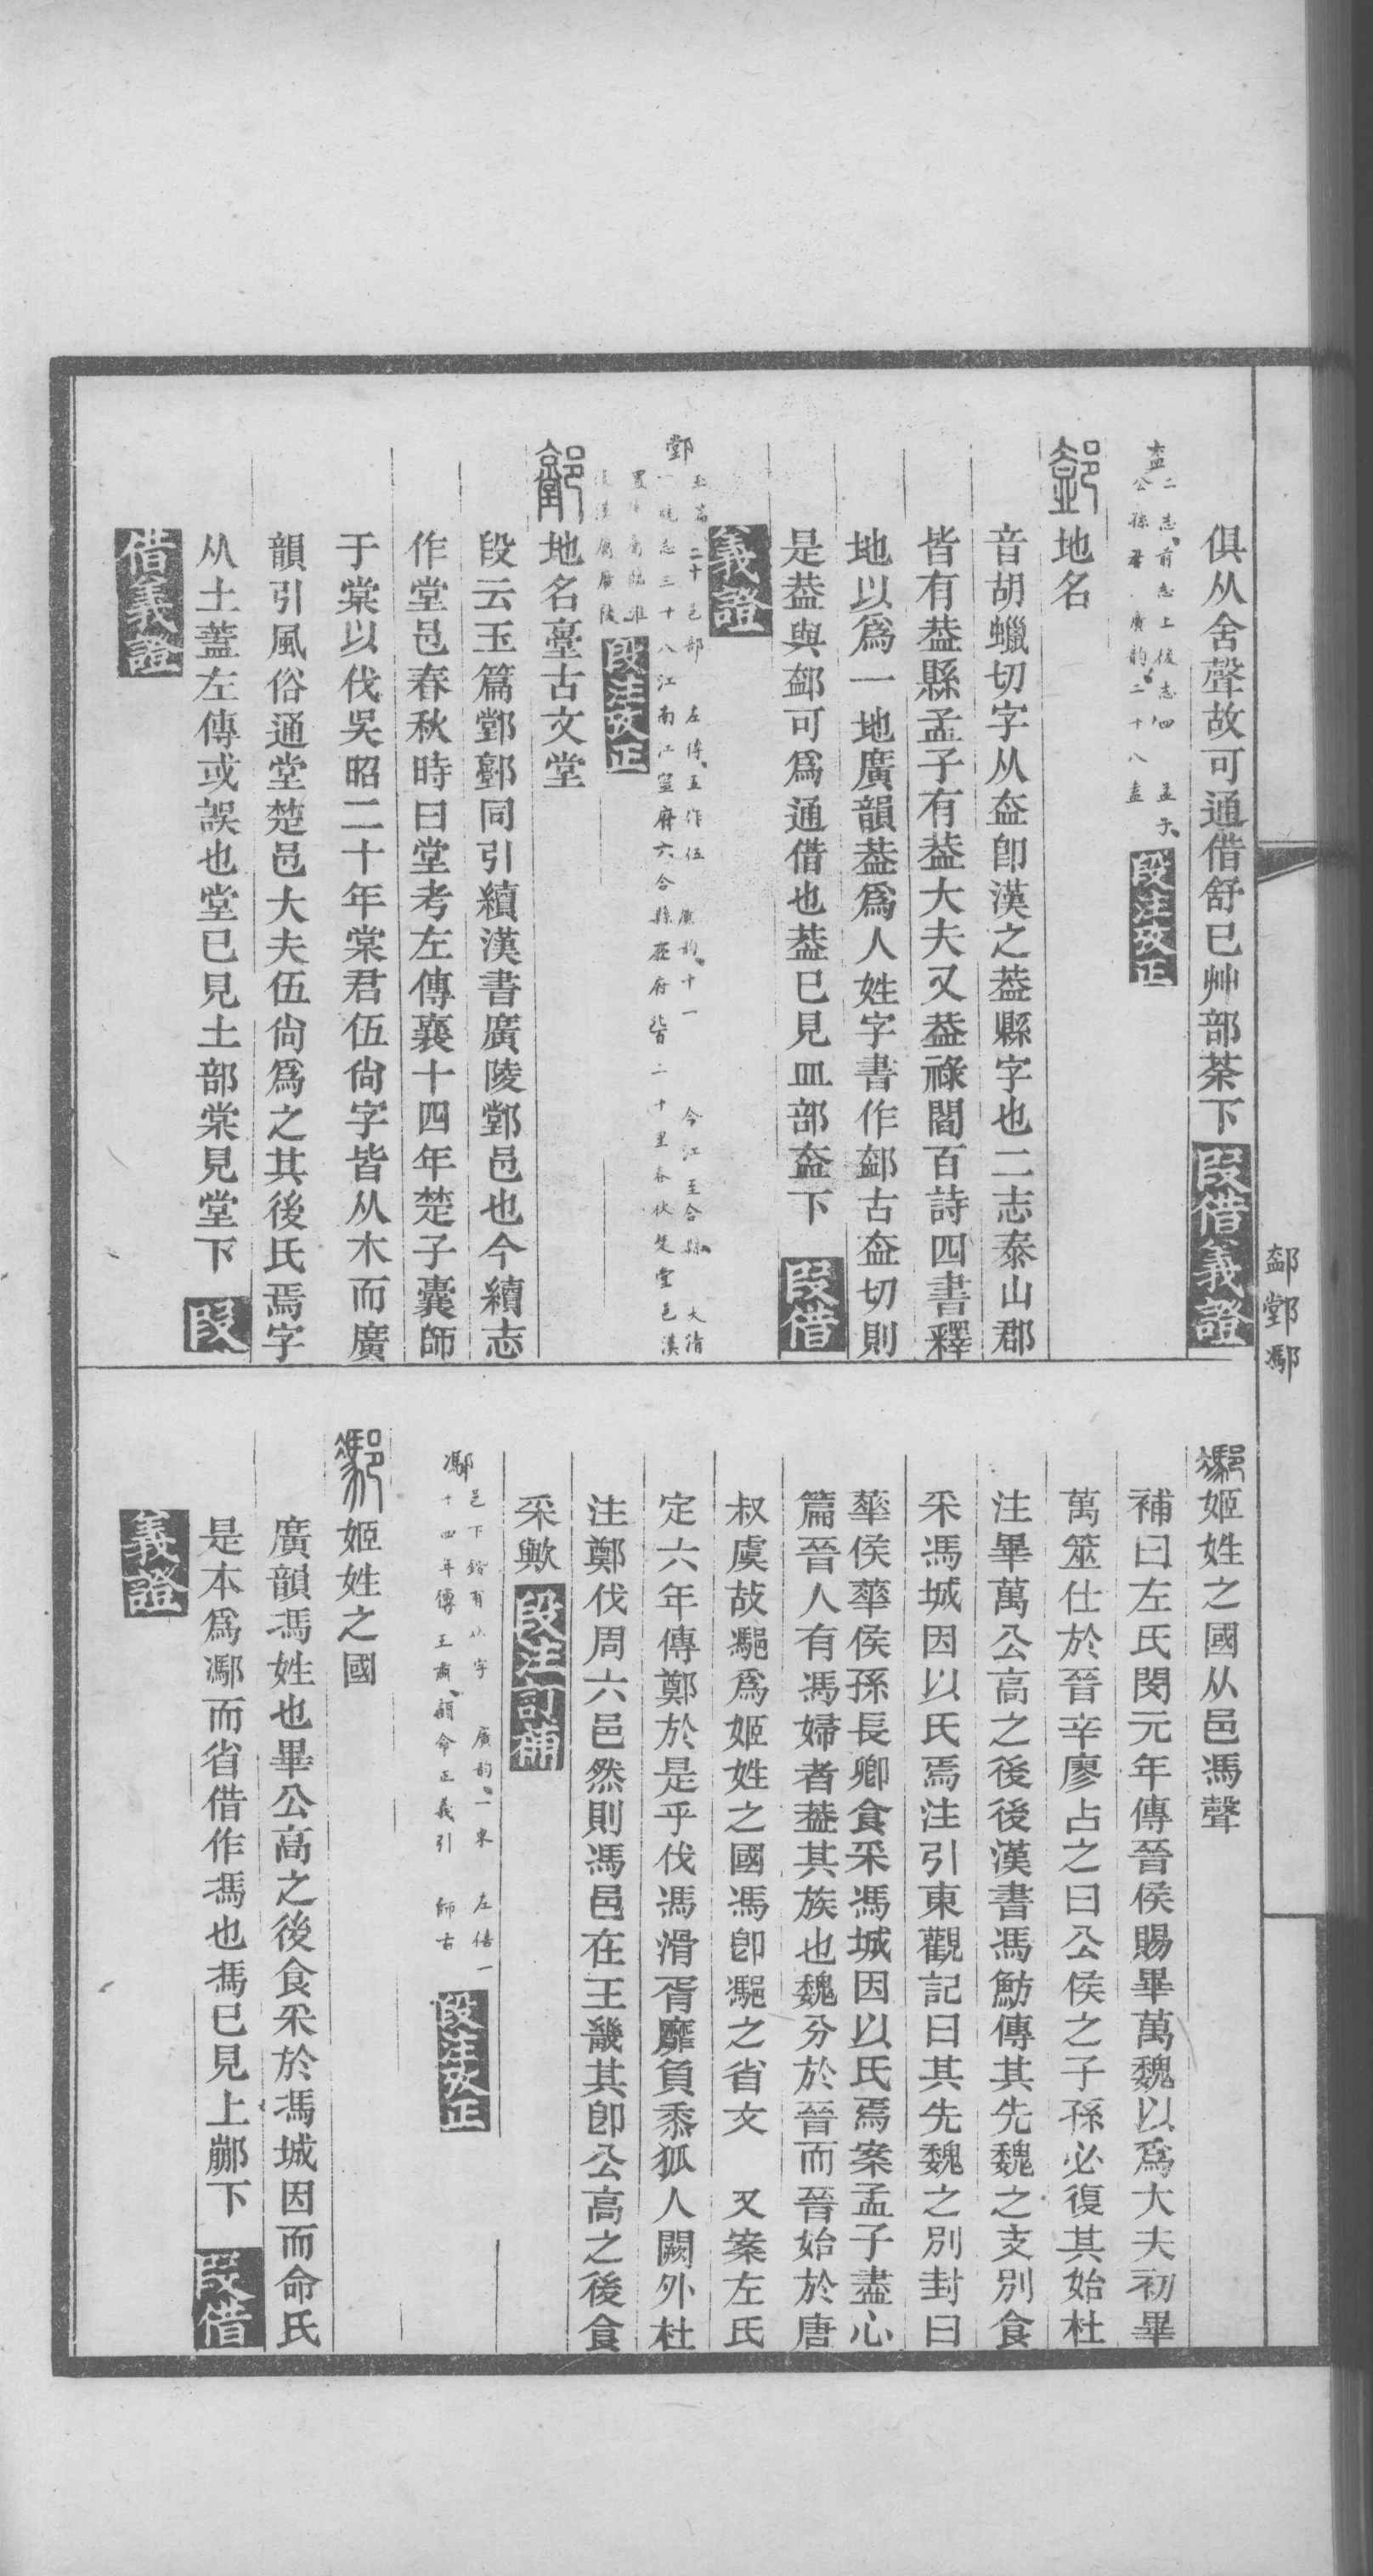 俱从舍聲故可通借舒巳艸部荼下 叚借義證
䣡 二志前志上後志四 孟子
公孫丑 廣韵二十八盍 段注攷正
䣡 地名
音胡蠟切字从盇卽漢之葢縣字也二志泰山郡
皆有葢縣孟子有葢大夫又葢祿閻百詩四書釋
地以爲一地廣韻葢爲人姓字書作䣡古盇切則
是葢與䣡可爲通借也葢巳見皿部盇下 叚借
義證
鄳 玉篇二十邑部 左傳五作伍 廣韵十一 今江 六合縣 大清
一統志三十八江南江寧府六合縣在府 二十里春秋楚堂邑漢
置 臨淮
後漢屬廣陵 段注攷正
地名臺古文堂
段云玉篇 同引續漢書廣陵 邑也今續志
作堂邑春秋時曰堂考左傳襄十四年楚子囊師
于棠以伐吳昭二十年棠君伍尙字皆从木而廣
韻引風俗通堂楚邑大夫伍尙爲之其後氏焉字
从土蓋左傳或誤也堂巳見土部棠見堂下 叚
借義證
䣡 鄭
姬姓之國从邑馮聲
補曰左氏閔元年傳晉侯賜畢萬魏以爲大夫初畢
萬筮仕於晉辛廖占之曰公侯之子孫必復其始杜
注畢萬公高之後後漢書馮魴傳其先魏之支別食
采馮城因以氏焉注引東觀記曰其先魏之別封曰
華侯華侯孫長卿食采馮城因以氏焉案孟子盡心
篇晉人有馮婦者葢其族也魏分於晉而晉始於唐
叔虞故䣝爲姬姓之國馮卽䣝之省文 又案左氏
定六年傳鄭於是乎伐馮滑胥靡負黍狐人闕外杜
注鄭伐周六邑然則馮邑在王畿其卽公高之後食
采歟 段注訂補
䣝 邑下鍇有从字 廣韵一東 左僖一
十四年傳王肅顧命正義引 師古 段注攷正
姬姓之國
廣韻馮姓也畢公高之後食采於馮城因而命氏
是本爲䣝而省借作馮也馮巳見上鄘下 叚借
義證